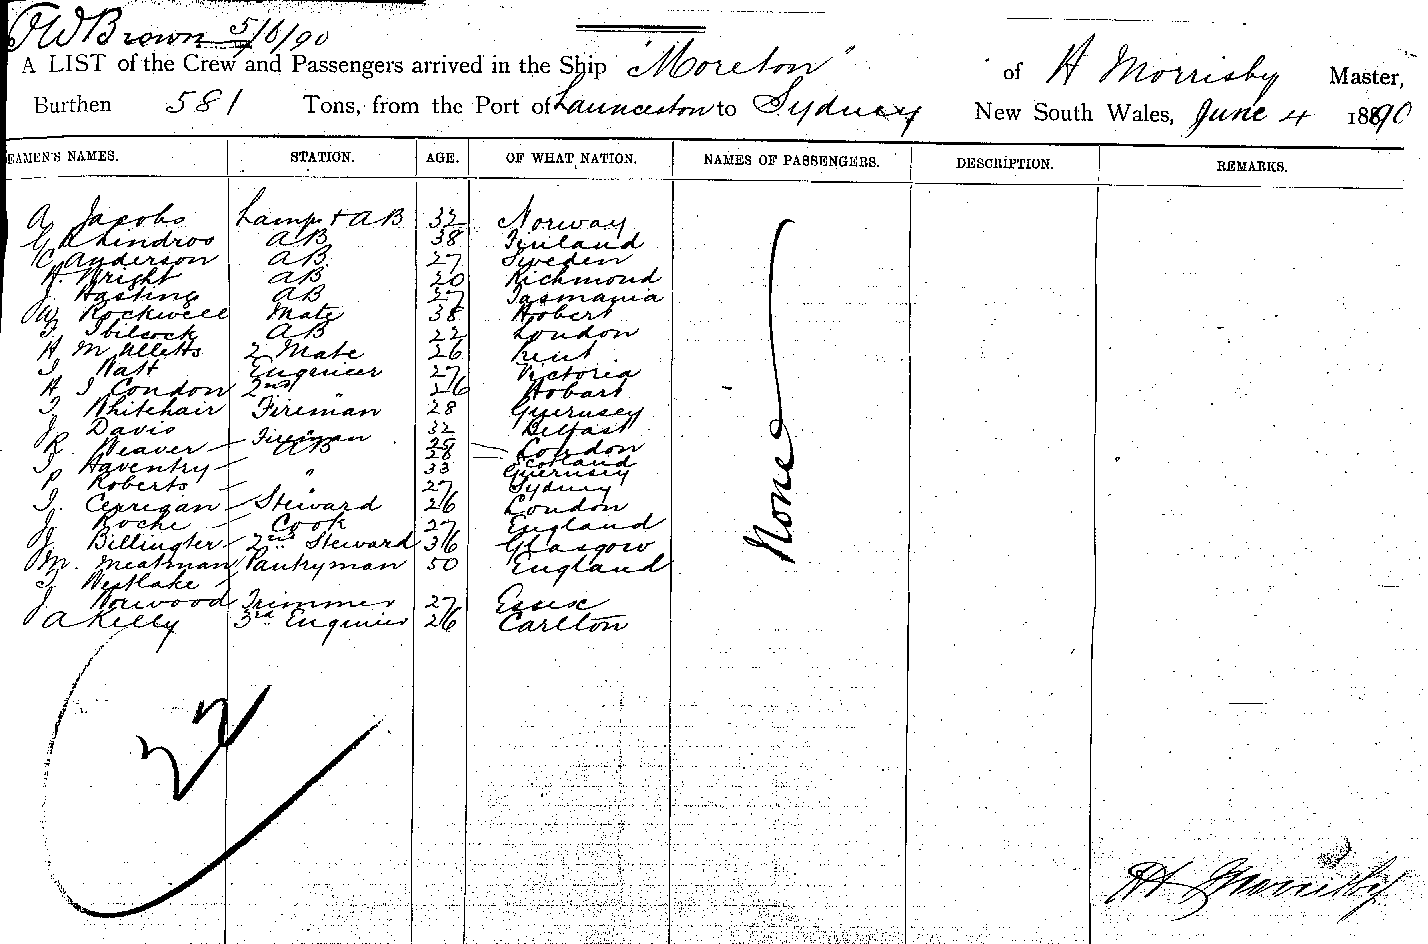 JW Brown 5/6/90
A LIST of the Crew and Passengers arrived in the Ship "Moreton" of H Morrisby Master,
Burthen 581 Tons, from the Port of Launceston to Sydney New South Wales, June 4 1890
EAMEN'S NAMES. STATION. AGE. OF WHAT NATION. NAMES OF PASSENGERS. DESCRIPTION. REMARKS.
A Jacobs Lamps + AB 32 Norway
G Lindros AB 38 Finland
C Anderson AB 27 Sweden
H. Wright AB 20 Richmond
J. Hasting AB 27 Tasmania
W Rockwell Mate 38 Hobert
AB 22 London
H M 2 Mate 26 Kent
Watt Engineer 27 Victoria
H J Condon 2nd " 26 Hobart
Whitehair Fireman 28 Guernsey
J Davis " 32 Belfast
R Weaver Fireman 29 London
Haventry AB 28 Scotland
P Roberts " 33 Guernsey
" 27 Sydney
Cerrigan Steward 26 London
J Roche Cook 27 England
J Billingter 2nd Steward 36 Glasgow
M. Meatman Pantryman 50 England
Westlake
J. Norwood Trimmer 27 Essex
A Kelly 3rd Engineer 26 Carlton
None
22
H Morrisby